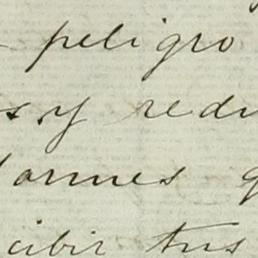 peligro
s y redu
formes q
cibir tus